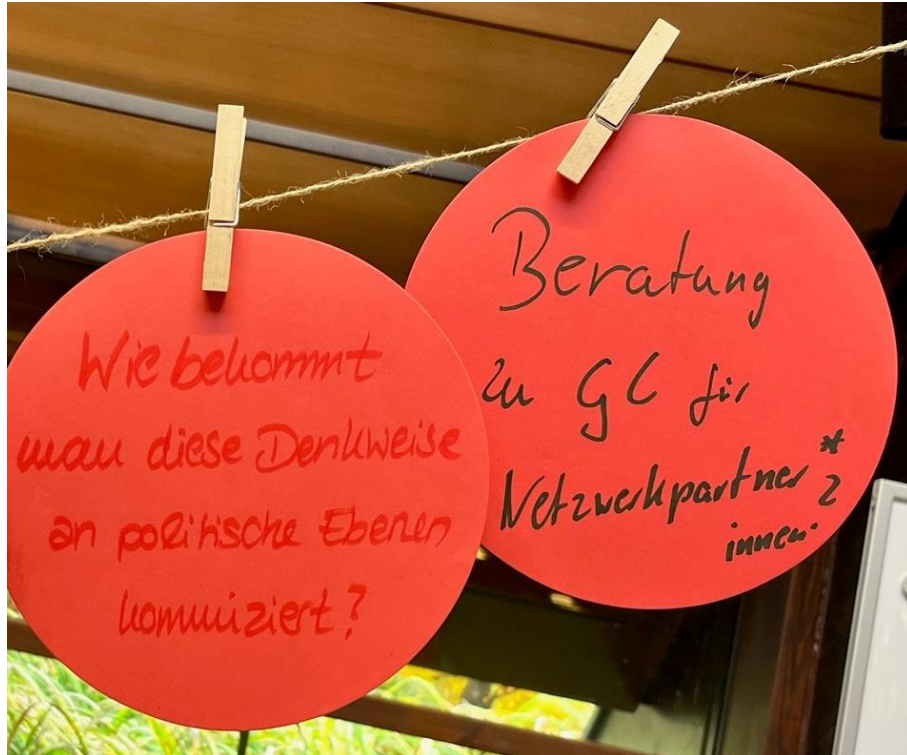 Wie bekommt
man diese Denkweise
an politische Ebenen
kommuiziert?
Beratung
zu GC für
Netzwerkpartner*
innen?